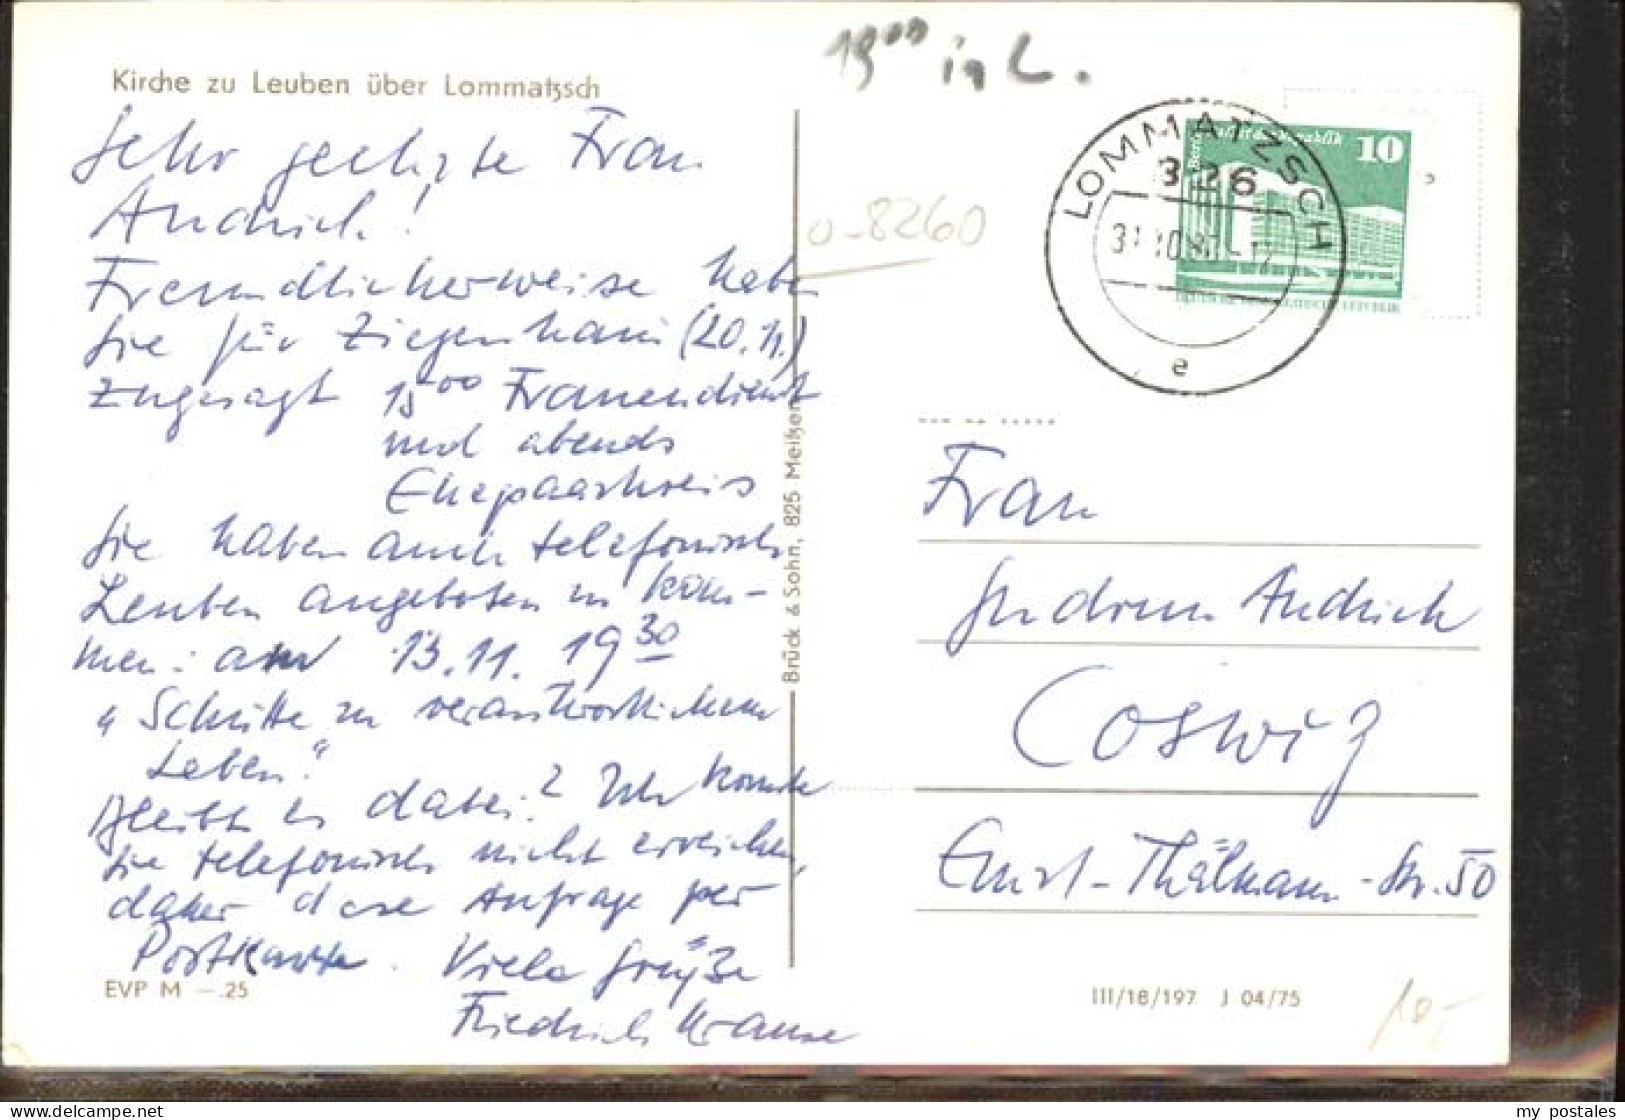 Kirche zu Leuben über Lommatzsch
Sehr geehrte Frau
Andrich!
Freundlicherweise haben
Sie für Ziegenhain (20.11.)
zugesagt 15⁰⁰ Frauendienst
und abends
Ehepaarkreis
Sie haben auch telefonisch
Leuben angeboten zu kom-
men: am 13.11. 19³⁰
"Schritte zu verantwortlichem
Leben."
Bleibt es dabei? Ich konnte
Sie telefonisch nicht erreichen,
daher diese Anfrage per
Postkarte. Viele Grüße
Friedrich Krause
EVP M –.25
Brück & Sohn, 825 Meißen
19⁰⁰ in L.
o-8260
LOMMATZSCH
326
31.10.
e
10
DEUTSCHE DEMOKRATISCHE REPUBLIK
Frau
Gudrun Andrich
Coswig
Ernst-Thälmann-Str. 50
III/18/197 J 04/75
10,-
my postales